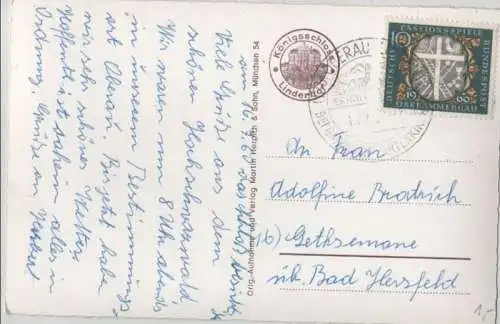 am 16.9.60 das Schloß besichtigt
Viele Grüße aus dem
schönen
Wir waren um 8 Uhr abends
in unserem Bestimmungs-
ort Oberau. Bis jetzt habe
wir sehr schönes Wetter.
Hoffentlich ist daheim alles in
Ordnung. Grüße an
Orig.-Aufnahme und Verlag Martin Herpich & Sohn, München 54
Königsschloss
Linderhof
PASSIONSSPIELE
10
DEUTSCHE
BUNDESPOST
1960
OBERAMMERGAU
An Frau
Adolfine Bratrich
16) Gethsemane
üb. Bad Hersfeld
1,-